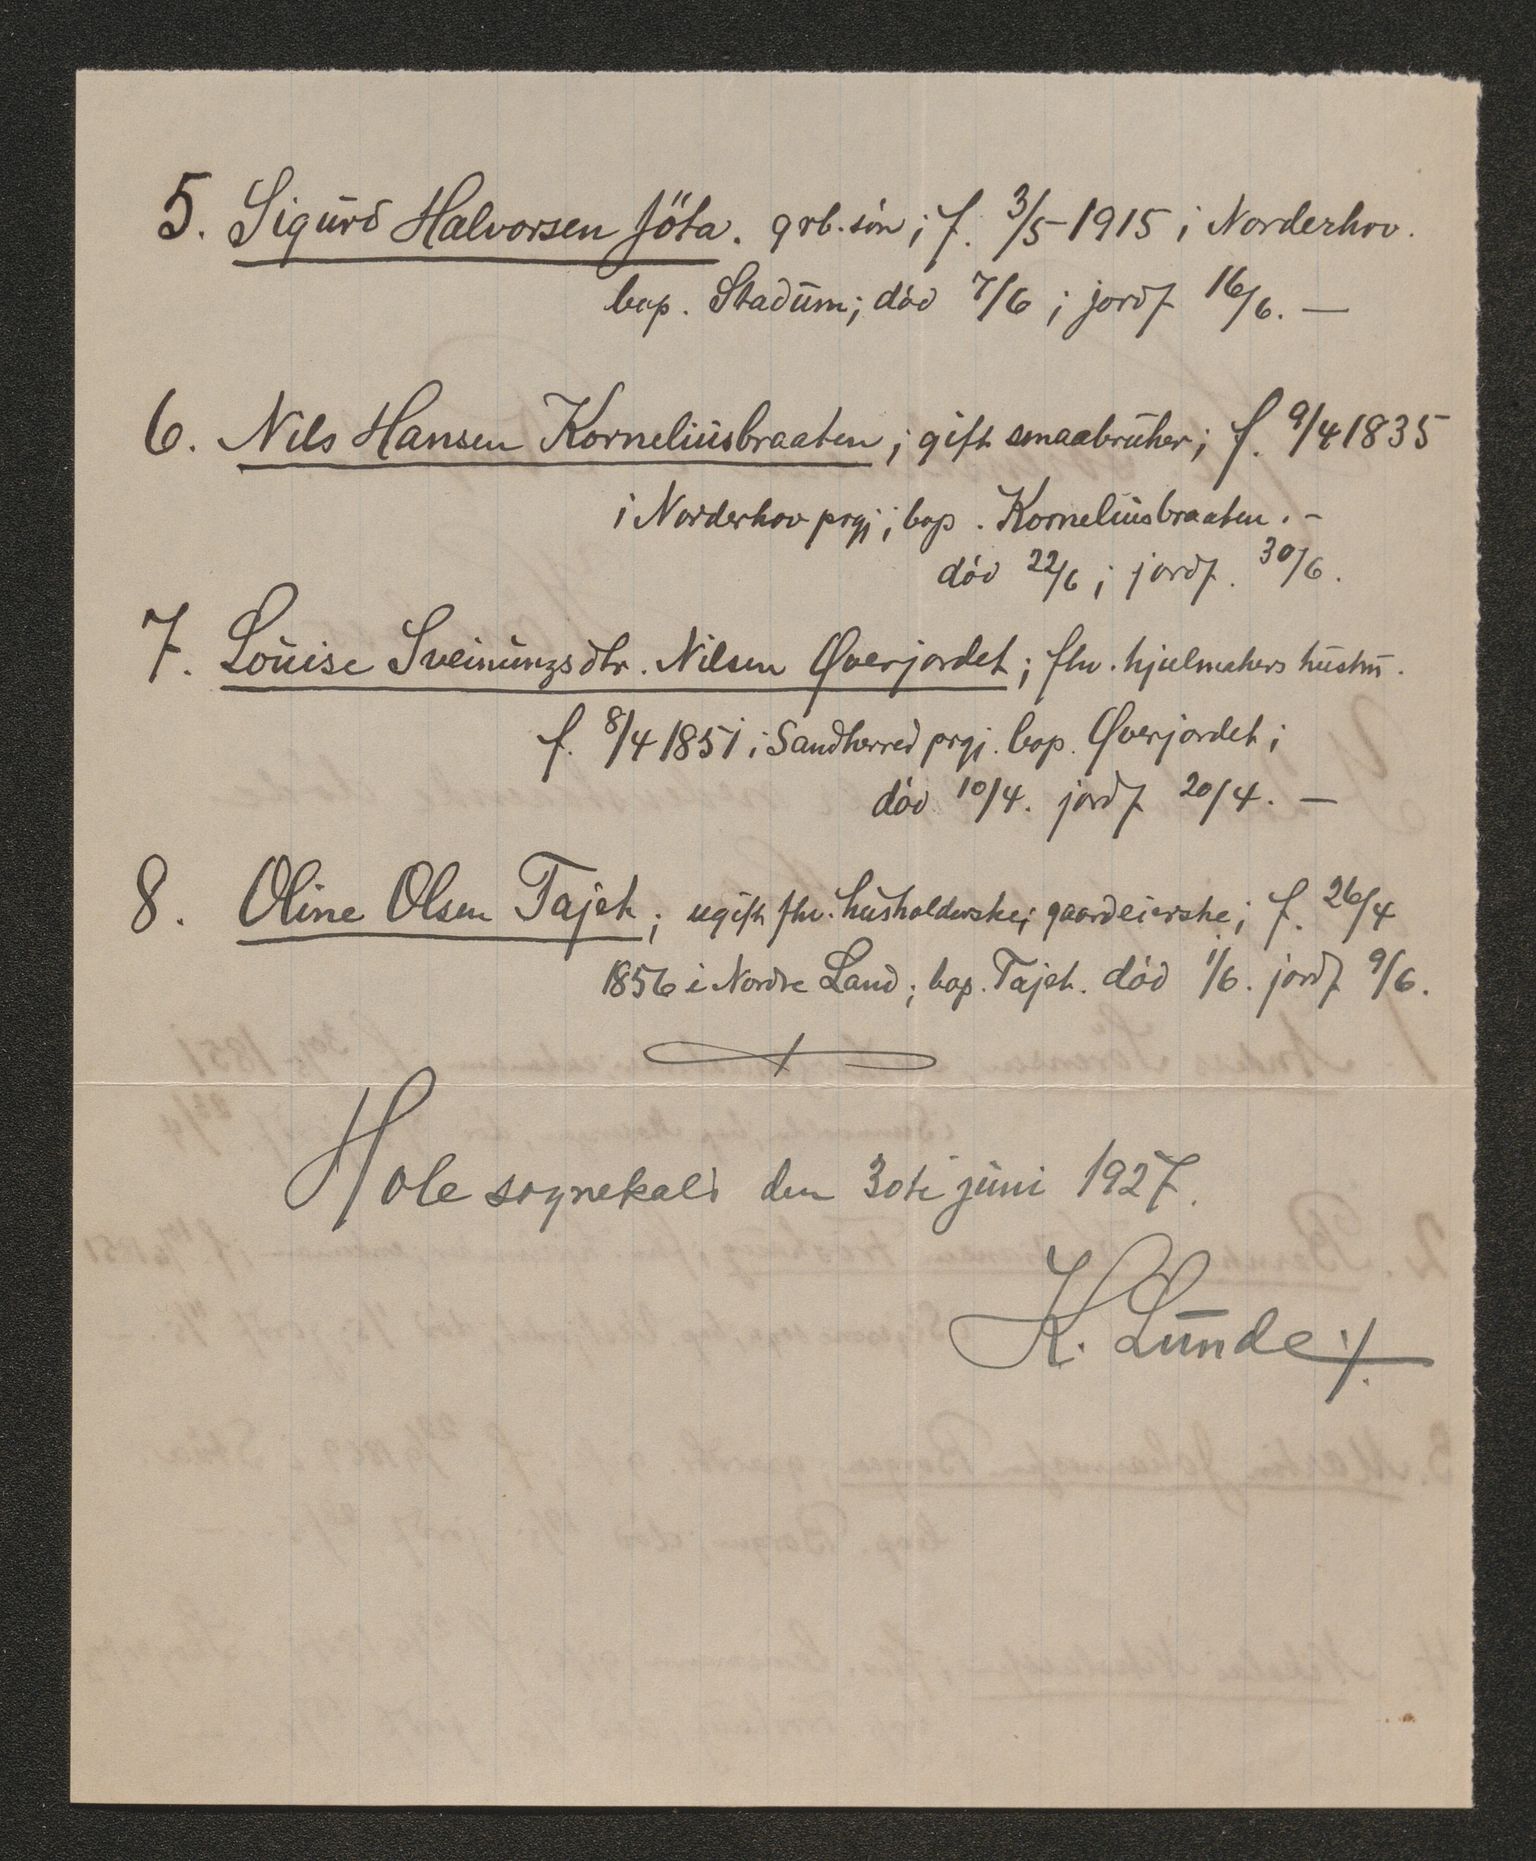 5. Sigurd Halvorsen Jöta. grb. søn; f. 3/5 1915 i Norderhov.
bop. Stadum; død 7/6; jordf 16/6. —
6. Nils Hansen Korneliusbraaten; gift smaabruker; f. 9/4 1835
i Norderhov prgj; bop. Korneliusbraaten. -
død 22/6; jordf. 30/6.
7. Louise Sveinungsdtr. Nilsen Øverjordet; fhv. hjulmakers hustru.
f. 8/4 1851 i Sandherred prgj. bop. Øverjordet;
død 10/4. jordf 20/4. —
8. Oline Olsen Tajet; ugift fhv. husholderske; gaardeierske; f. 26/4
1856 i Nordre Land; bop. Tajet. død 1/6. jordf 9/6.
Hole sognekald den 30te juni 1927.
K. Lunde